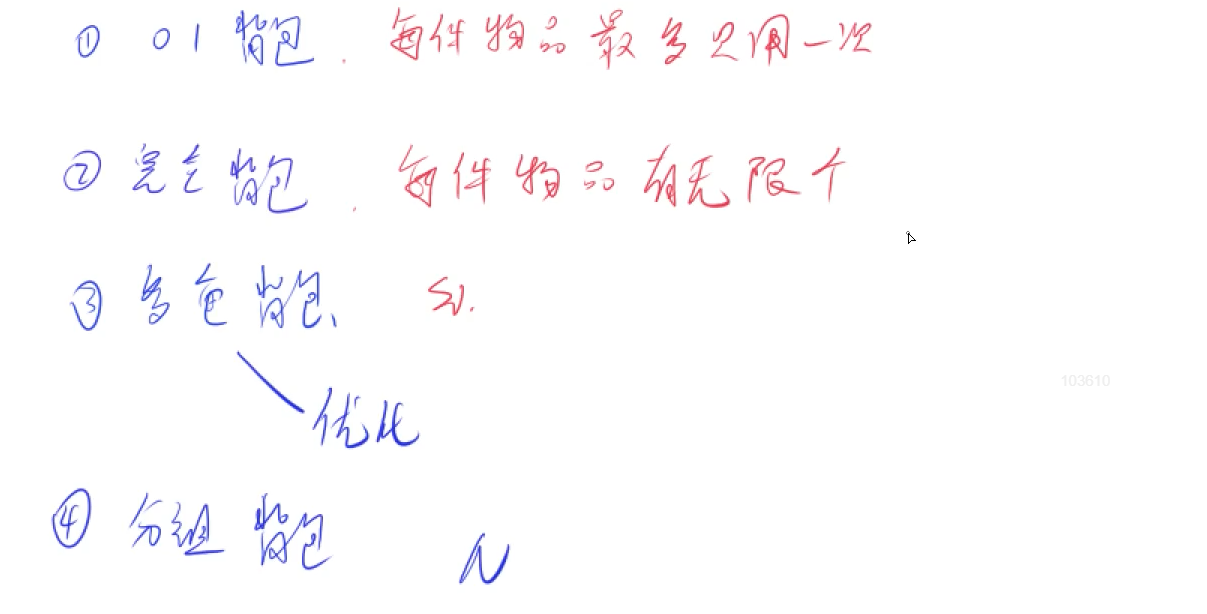 ① 01背包. 每件物品最多只用一次
② 完全背包. 每件物品有无限个
③ 多重背包、 Si.
103610
优化
④ 分组背包 N